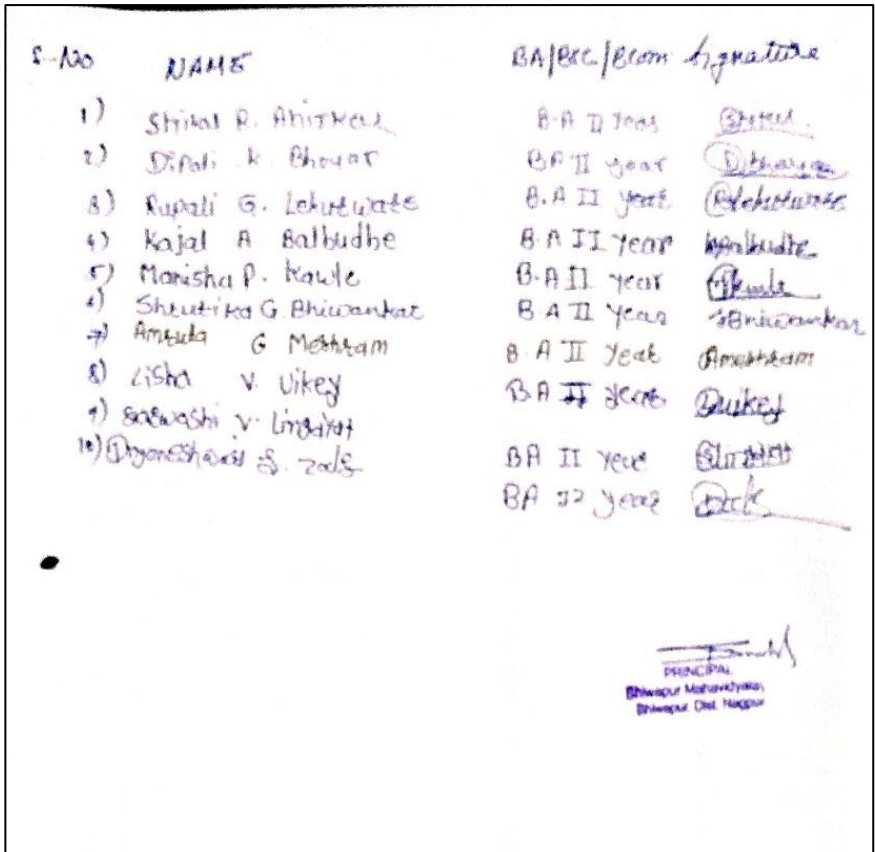 S-No NAME BA/BSC/Bcom Signature
1) R. B.A II year
2) Dipali K Bhoyar BA II year Dbhoyar
3) Rupali G. Lekurwate B.A II year Rlekurwate
4) Kajal A Balbudhe B.A II year kBalbudhe
5) Manisha P. Kawle B.A II year
6) Shrutika G. Bhiwankar B.A II Year SBhiwankar
7) Amruta G Meshram B.A II Year Ameshram
8) Lisha V. Uikey B.A II year Luikey
9) V. Lingayat BA II Year
10) BA II year
PRINCIPAL
Bhiwapur Mahavidyalaya,
Bhiwapur Dist. Nagpur